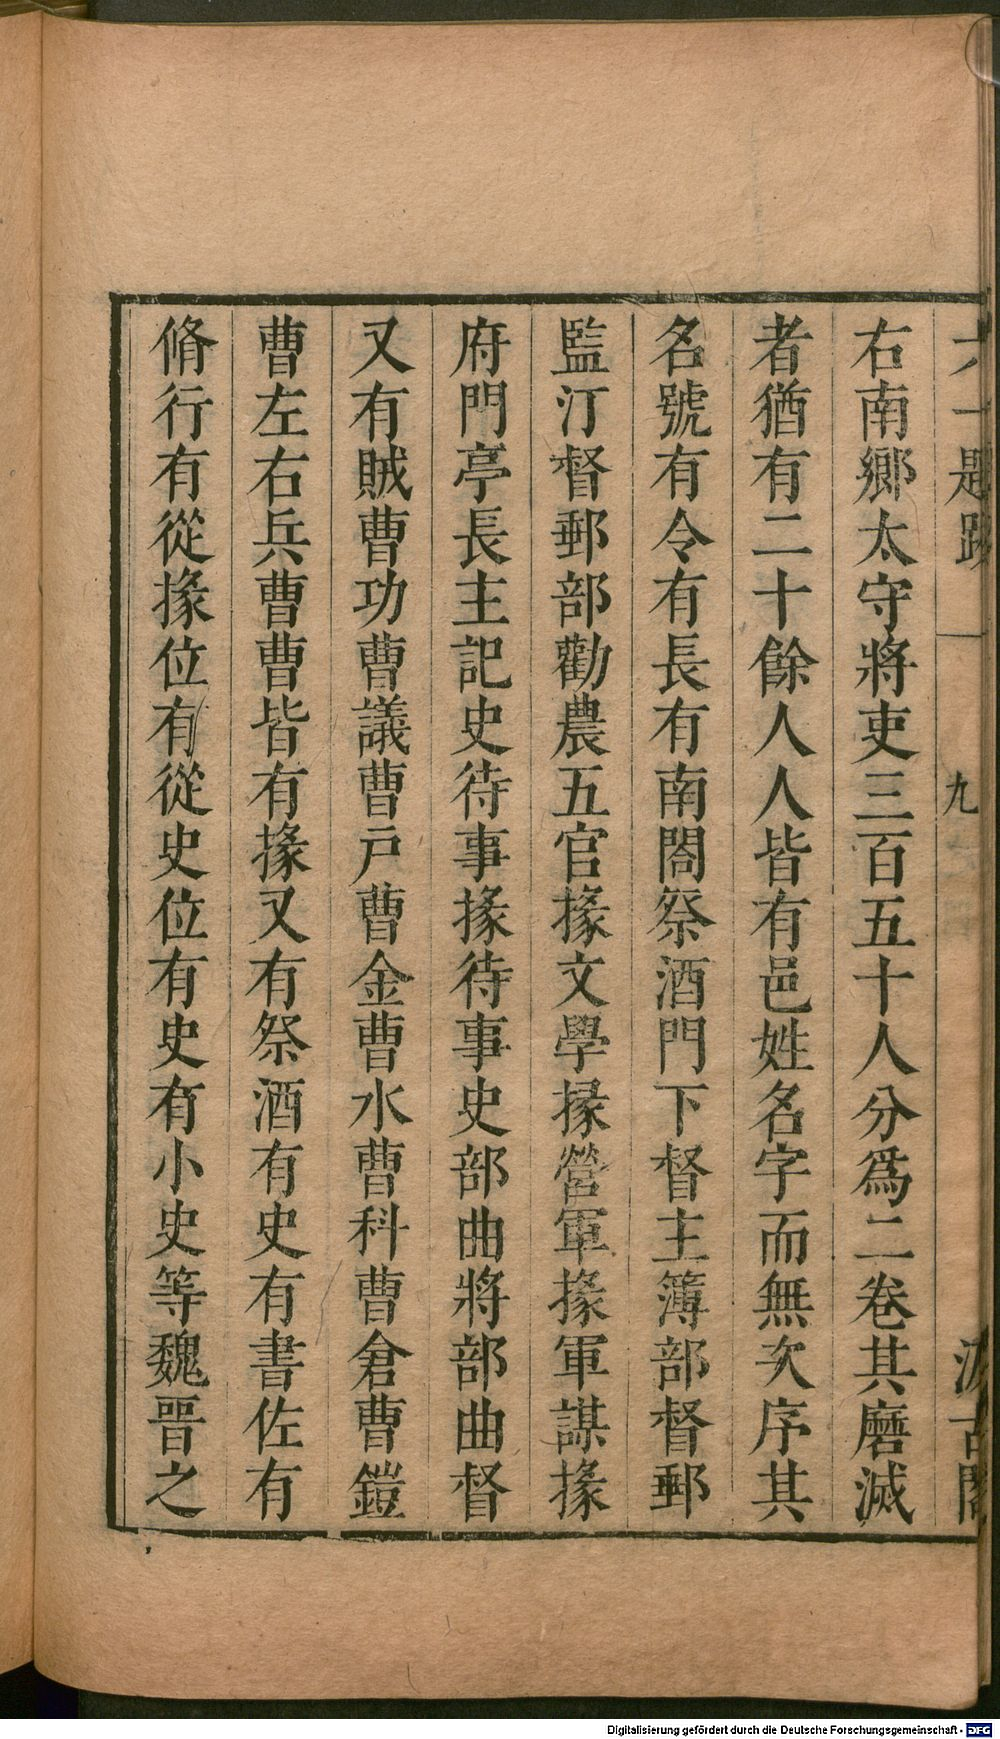 六一題跋 九 汲古閣
右南鄉太守將吏三百五十人分爲二卷其磨滅
者猶有二十餘人人皆有邑姓名字而無次序其
名號有令有長有南閤祭酒門下督主簿部督郵
監汀督郵部勸農五官掾文學掾營軍掾軍謀掾
府門亭長主記史待事掾待事史部曲將部曲督
又有賊曹功曹議曹戶曹金曹水曹科曹倉曹鎧
曹左右兵曹曹皆有掾又有祭酒有史有書佐有
脩行有從掾位有從史位有史有小史等魏晉之
Digitalisierung gefördert durch die Deutsche Forschungsgemeinschaft - DFG